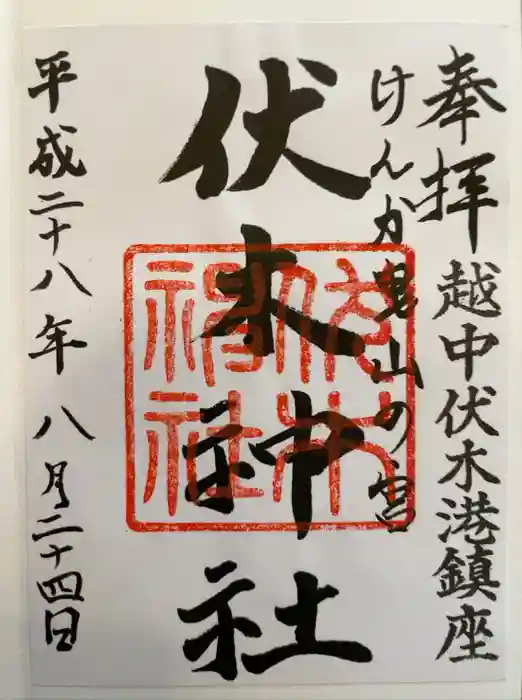 奉拝 越中伏木港鎮座
けんか曳山の宮
伏木神社
伏木神社
平成二十八年 八月二十四日